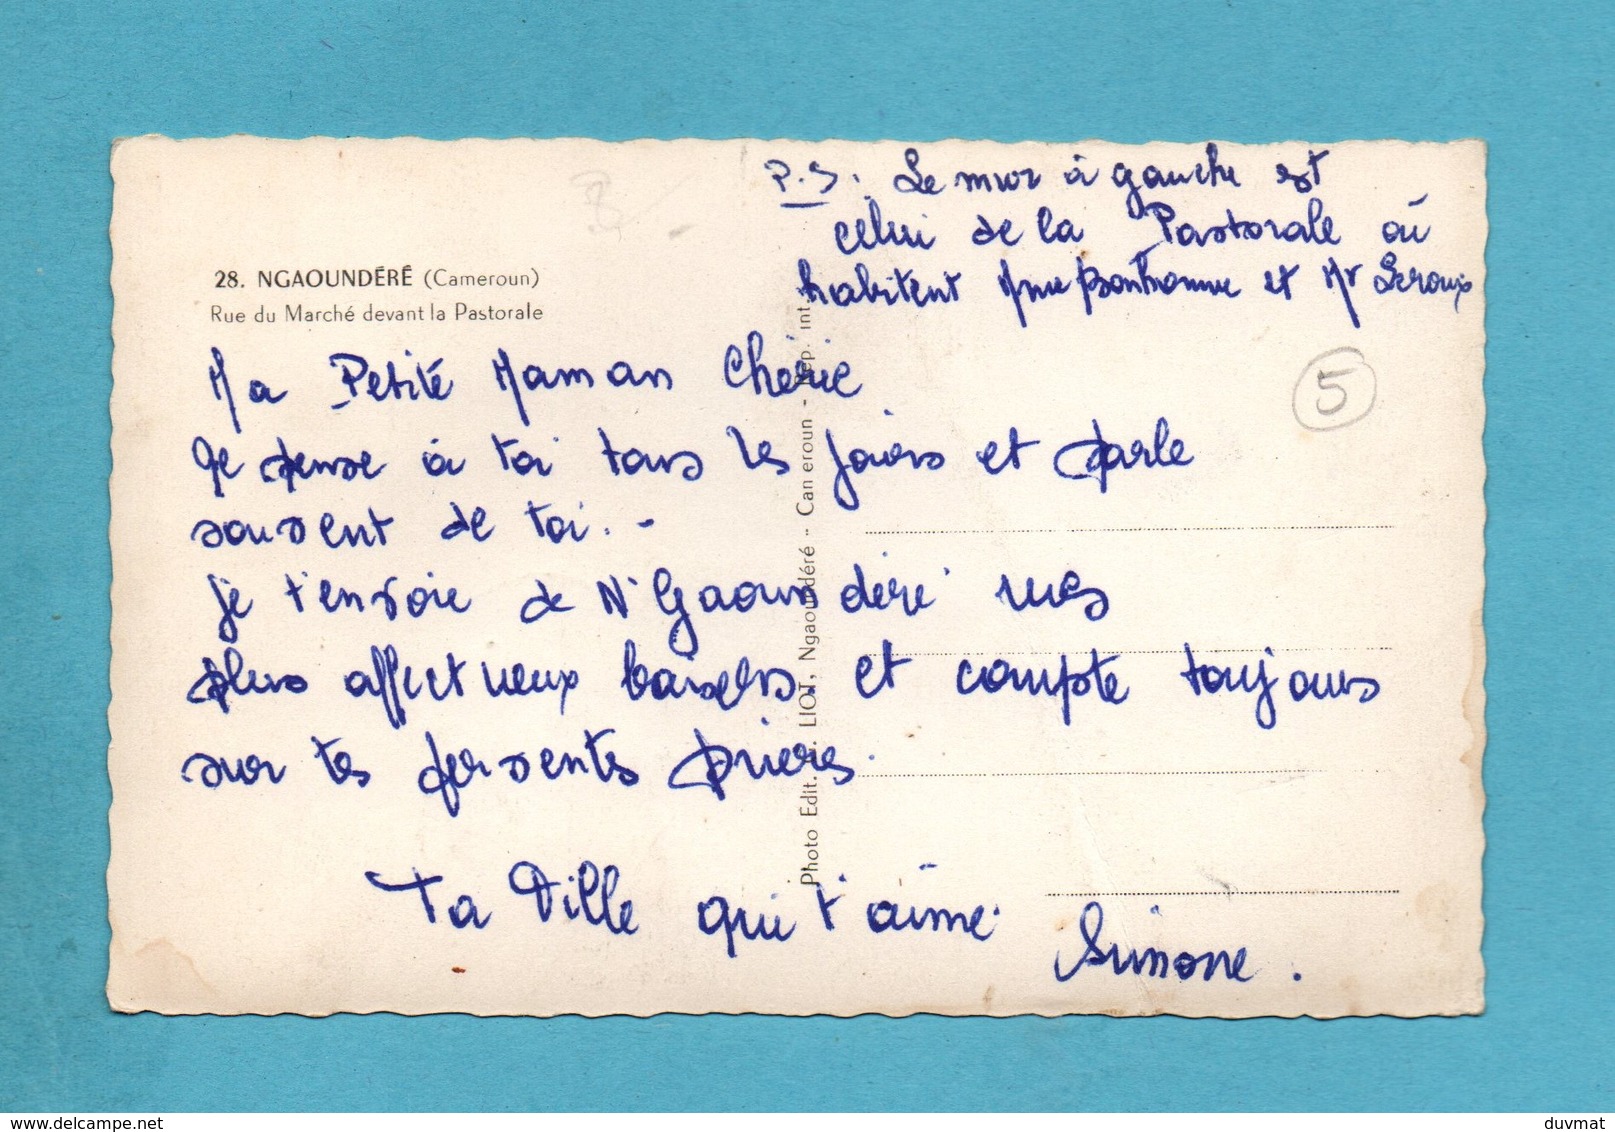 P.S. Le mur à gauche est
celui de la Pastorale où
habitent Mme Bonhomme et Mr Leroux
28. NGAOUNDÉRÉ (Cameroun)
Rue du Marché devant la Pastorale
Ma Petite Maman Chérie
5
Je pense à toi tous les jours et parle
souvent de toi. -
Je t'envoie de N'Gaoundéré mes
plus affectueux baisers. et compte toujours
sur tes ferventes prières.
Ta Fille qui t'aime.
Simone.
Photo Edit. LIOT, Ngaoundéré - Cameroun - Rep. int.
delcampe.net
duvmat